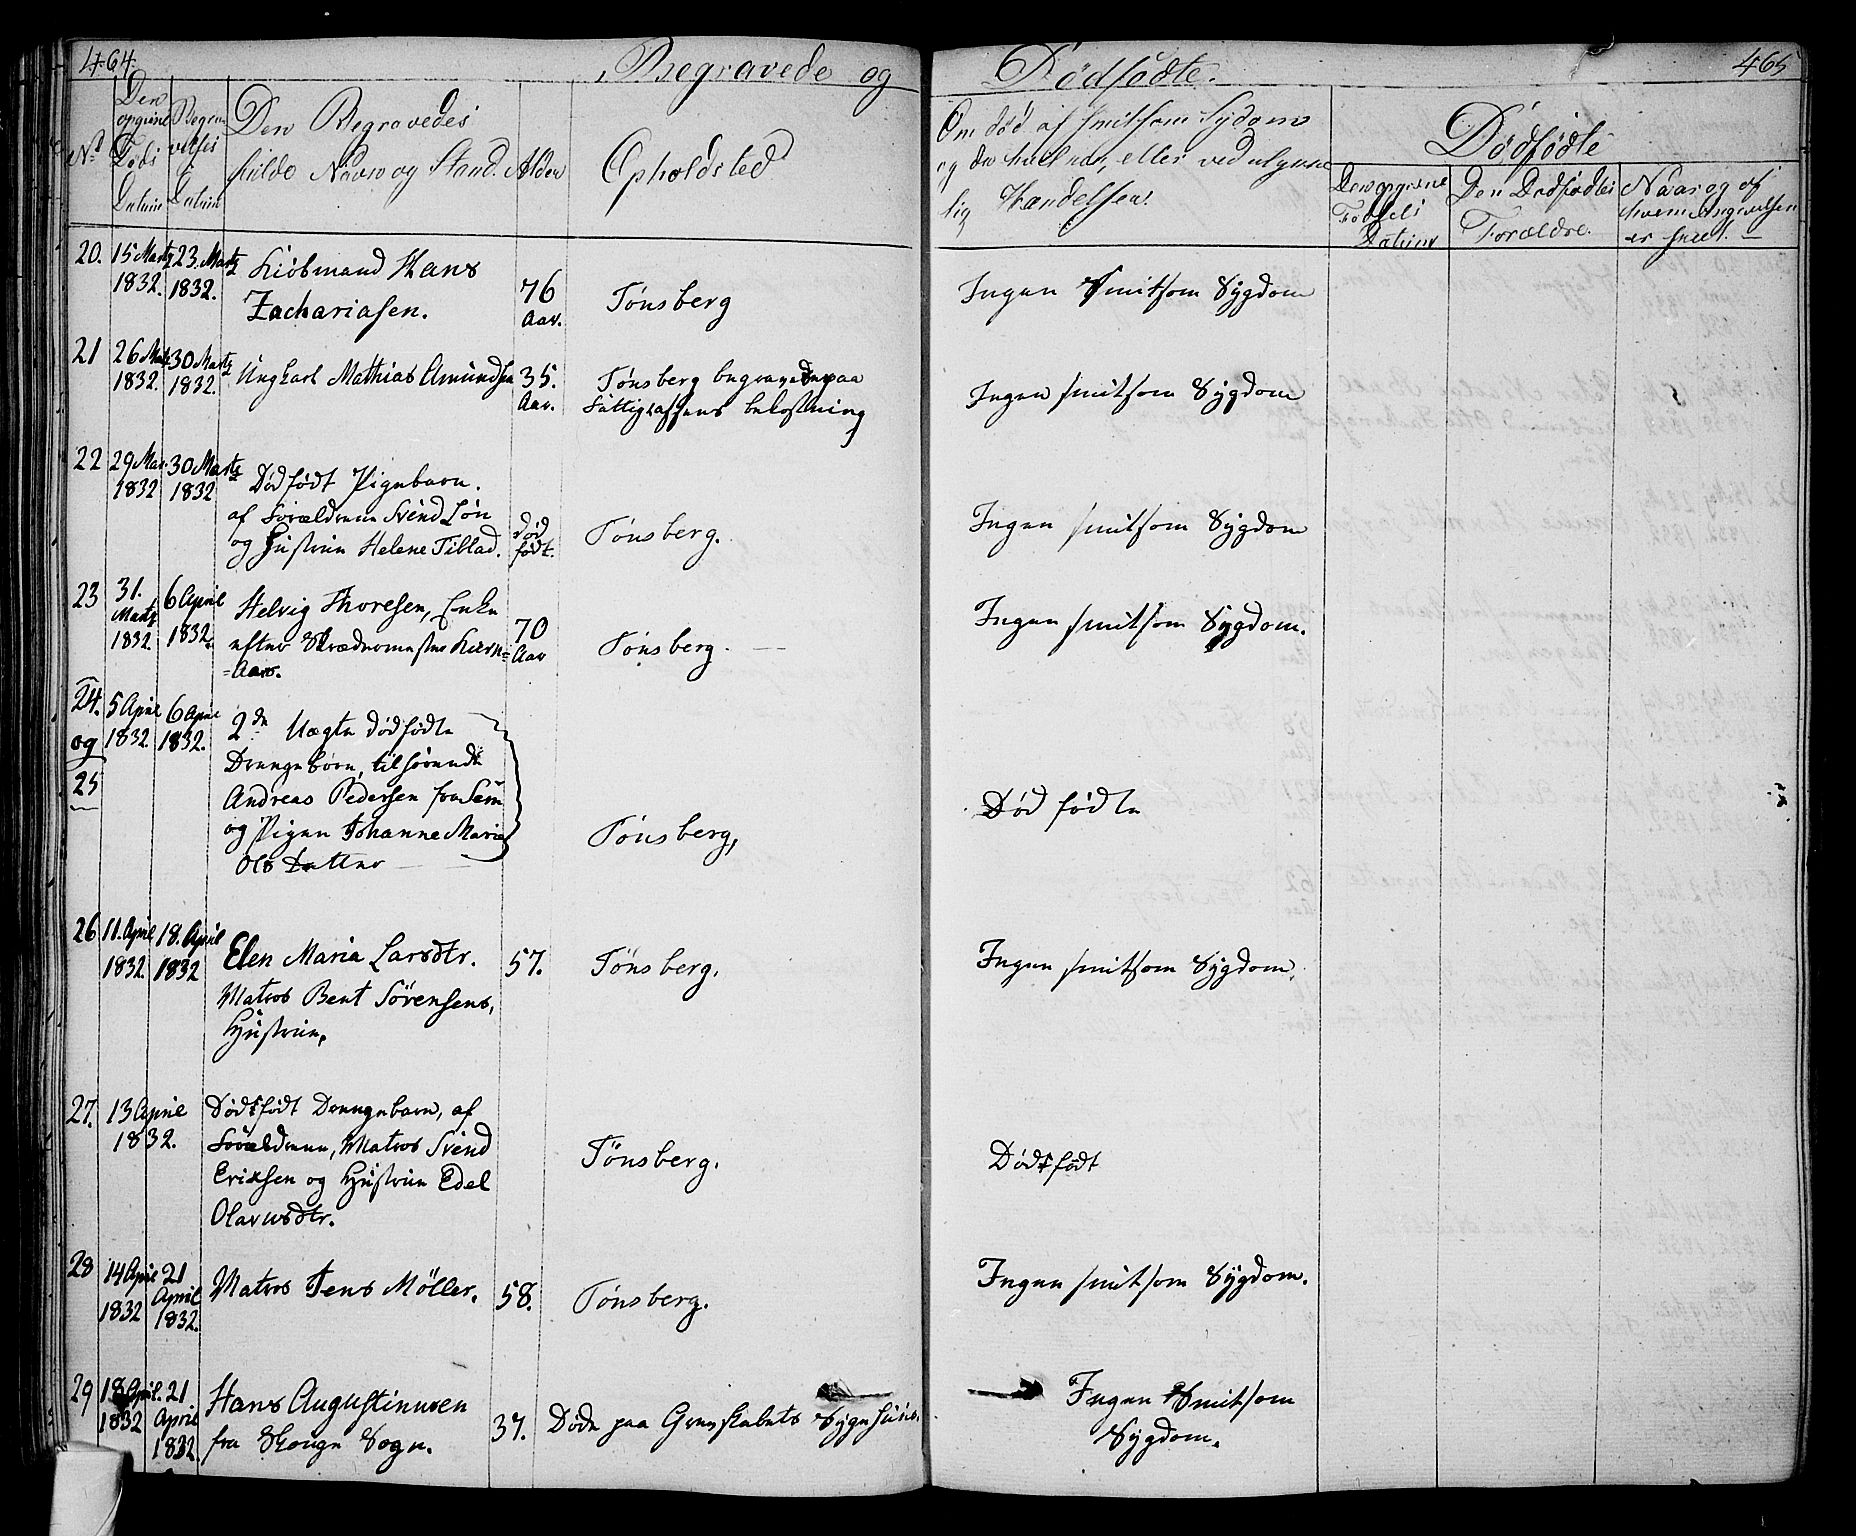 464.
Begravede og
Dødfødte.
465
No
Den opgivne Døds Datum
Begravelses Datum
Den Begravedes fulde Navn og Stand.
Alder
Opholdsted
Om død af smitsom Sydom og da hvilken, eller ved ulyckelig Hændelse.
Dødfødte
Den opgivne Fødsels Datum
Den Dødfødtes Forældre.
Naar og af hvem Angivelsen er skeet.
20.
15 Martz 1832.
23. Martz 1832.
Kiøbmand Hans
Zachariasen.
76 Aar.
Tønsberg
Ingen Smitsom Sygdom
21
26 Martz 1832.
30 Martz 1832.
Ungkarl Mathias Amundsen
35. Aar.
Tønsberg begravet paa
Fattigkassens bekostning
Ingen smitsom Sygdom
22
29 Mar. 1832
30 Martz 1832
Død født Pigebarn.
af Forældrene Svend Løn
og Hustrue Helene Tiblad.
død født.
Tønsberg.
Ingen smitsom Sygdom
23
31. Martz 1832.
6 April 1832.
Helvig Thoresen, Enke
efter Skrædermester
Aar.
70 Aar
Tønsberg.
Ingen smitsom Sygdom.
24.
og
25
5 April 1832
6 April 1832.
2de Uægte dødfødte
Drengebørn, tilhørende
Andreas Pedersen fra Sem
og Pigen Johanne Marie
Ols Datter
Tønsberg,
Død fødte
26
11. April 1832.
18. April 1832
Elen Maria Larsdtr.
Matros Bent Sörensens,
Hustrue,
57.
Tönsberg.
Ingen smitsom Sygdom.
27.
13 April 1832.
Dødfødt Drengebarn, af
Forældrene, Matros Svend
Eriksen og Hustrue Edel
Olavusdtr.
Tönsberg.
Dødfødt
28
14 April 1832
21 April 1832.
Matros Jens Möller.
58.
Tönsberg.
Ingen smitsom Sygdom.
29
18 April. 1832
21 April 1832.
Hans Augustinusen
fra Skouge Sogn.
37.
Døde paa Grevskabets Sygehuus.
Ingen Smitsom
Sygdom.